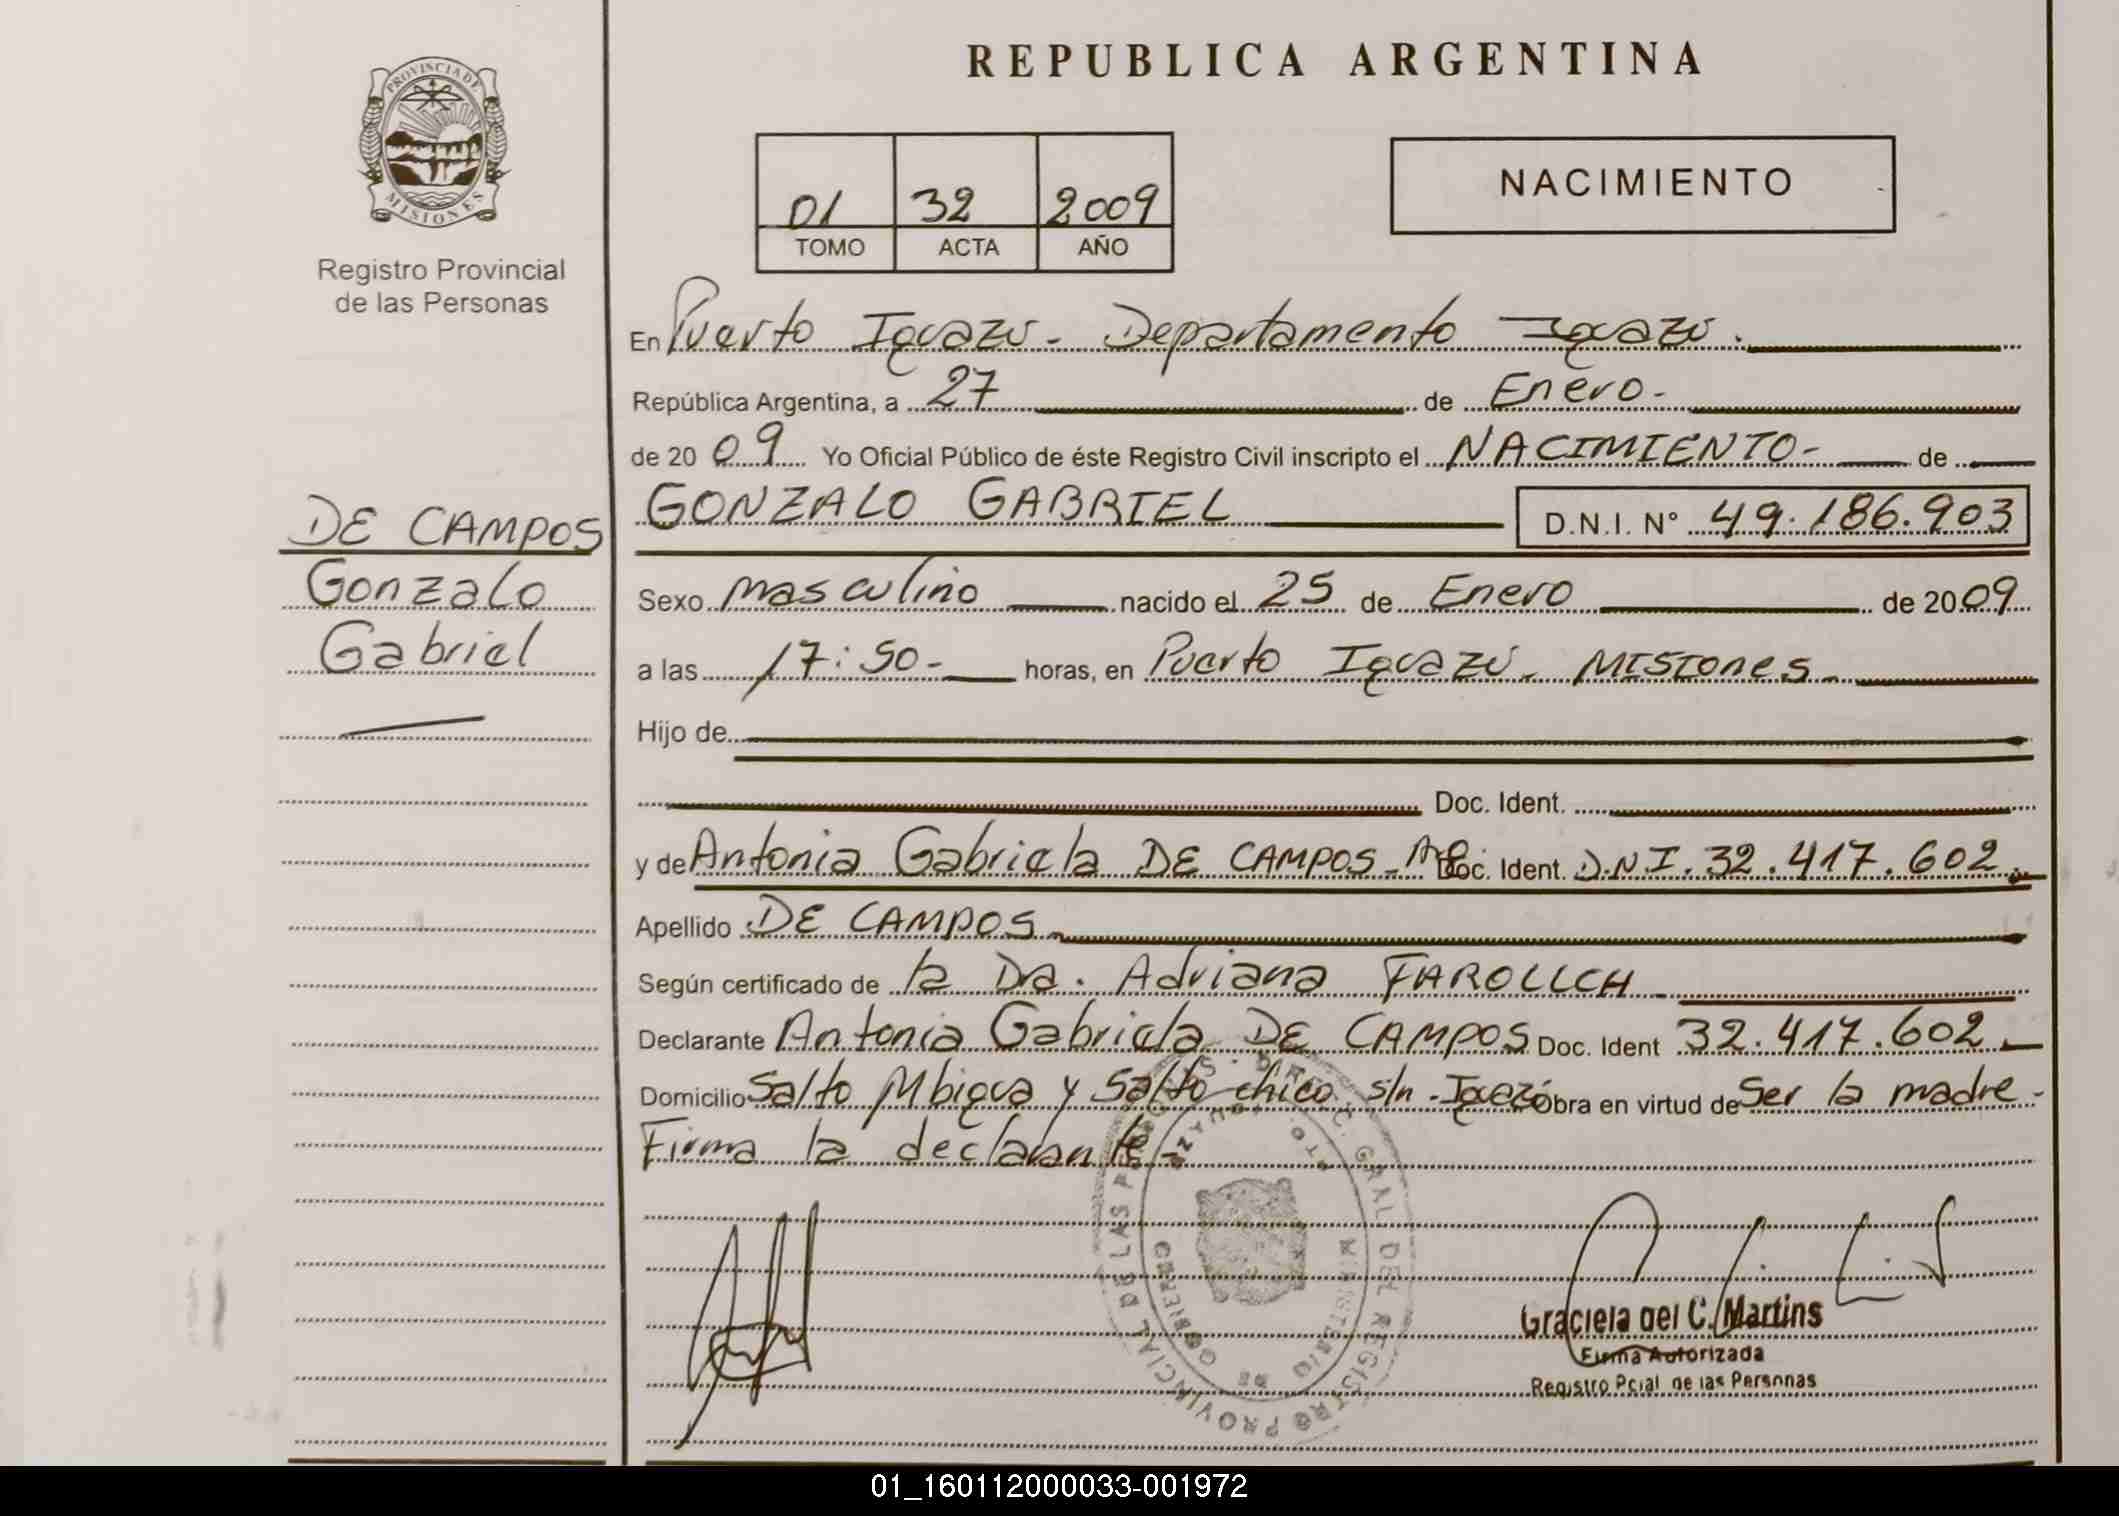 REPUBLICA ARGENTINA
PROVINCIA DE
MISIONES
Registro Provincial
de las Personas
01 32 2009
TOMO ACTA AÑO
NACIMIENTO
En Puerto Iguazú - Departamento Iguazú.
República Argentina, a 27 de Enero-
de 2009 Yo Oficial Público de éste Registro Civil inscripto el NACIMIENTO- de
GONZALO GABRIEL D.N.I. N° 49.186.903
DE CAMPOS
Gonzalo
Gabriel
Sexo masculino nacido el 25 de Enero de 2009
a las 17:50- horas, en Puerto Iguazú - MISIONES -
Hijo de
Doc. Ident.
y de Antonia Gabriela DE CAMPOS - Doc. Ident. D.N.I. 32.417.602.
Apellido DE CAMPOS -
Según certificado de la Dra. Adriana
Declarante Antonia Gabriela DE CAMPOS Doc. Ident 32.417.602 -
Domicilio Salto Mbigua y Salto chico s/n - Iguazú Obra en virtud de Ser la madre -
Firma la declarante -
DIREC. GRAL DEL REGISTRO PROVINCIAL DE LAS
MINISTERIO DE GOBIERNO
Graciela del C. Martins
Firma Autorizada
Registro Pcial de las Personas
01_160112000033-001972